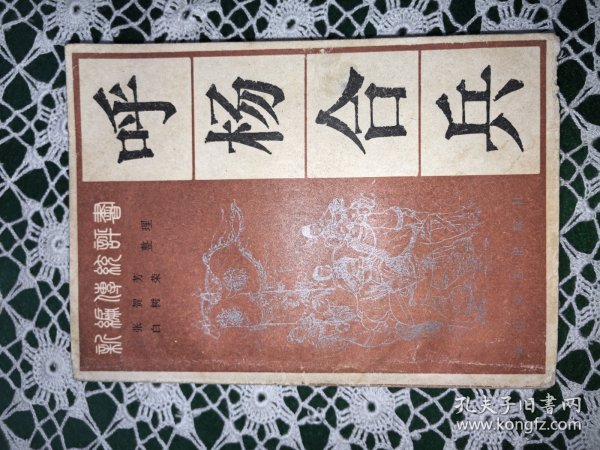 呼杨合兵
新编传统评書
张贺芳
白树荣
整理
孔夫子旧书网
www.kongfz.com